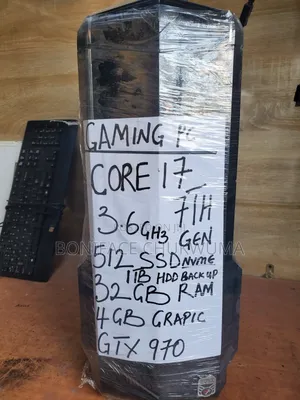 GAMING PC
CORE i7
7TH
3.6GHz GEN
512 SSD NVME
1TB HDD BACK UP
32GB RAM
4GB GRAPIC
GTX 970
BONIFACE CHUKWUMA